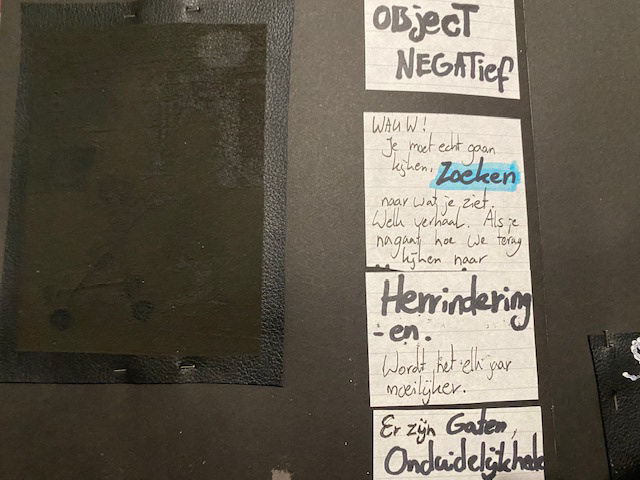 OBjecT
NEGATief
WAUW!
Je moet echt gaan
kijken. Zoeken
naar wat je ziet.
Welk verhaal. Als je
nagaat hoe we terug
kijken naar
Herrindering
-en.
Wordt het elk jaar
moeilijker.
Er zijn Gaten,
Onduidelijkhede